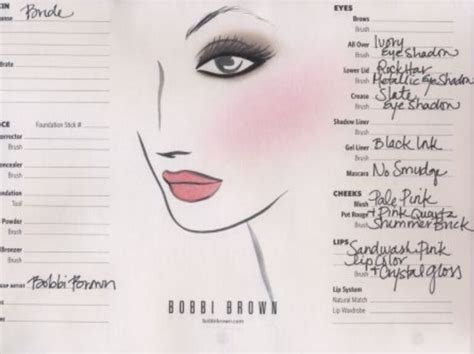 KIN
Bride
ame
Brush
Brate
ACE
Foundation Stick #
orrector
Brush
oncealer
Brush
undation
Tool
Powder
Brush
Bronzer
Brush
UP ARTIST Bobbi Brown
BOBBI BROWN
bobbibrown.com
EYES
Brows
Brush
All Over Ivory
Brush Eye Shadow
Lower Lid Rock Star
Brush Metallic Eye Shadow
Crease Slate
Brush Eye Shadow
Shadow Liner
Brush
Gel Liner Black Ink
Brush
Mascara No Smudge
CHEEKS
Blush Pale Pink
Pot Rouge + Pink Quartz
Brush Shimmer Brick
LIPS
Sandwash Pink
Lip Color
+ Crystal gloss
Lip System
Natural Match
Lip Wardrobe